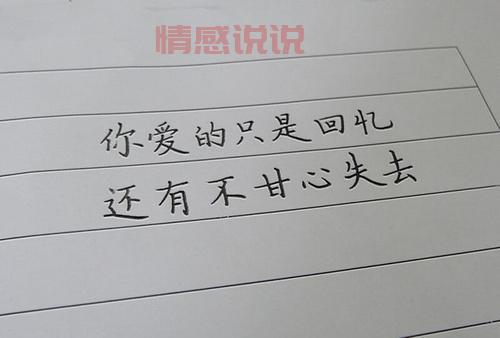 情感说说
你爱的只是回忆
还有不甘心失去